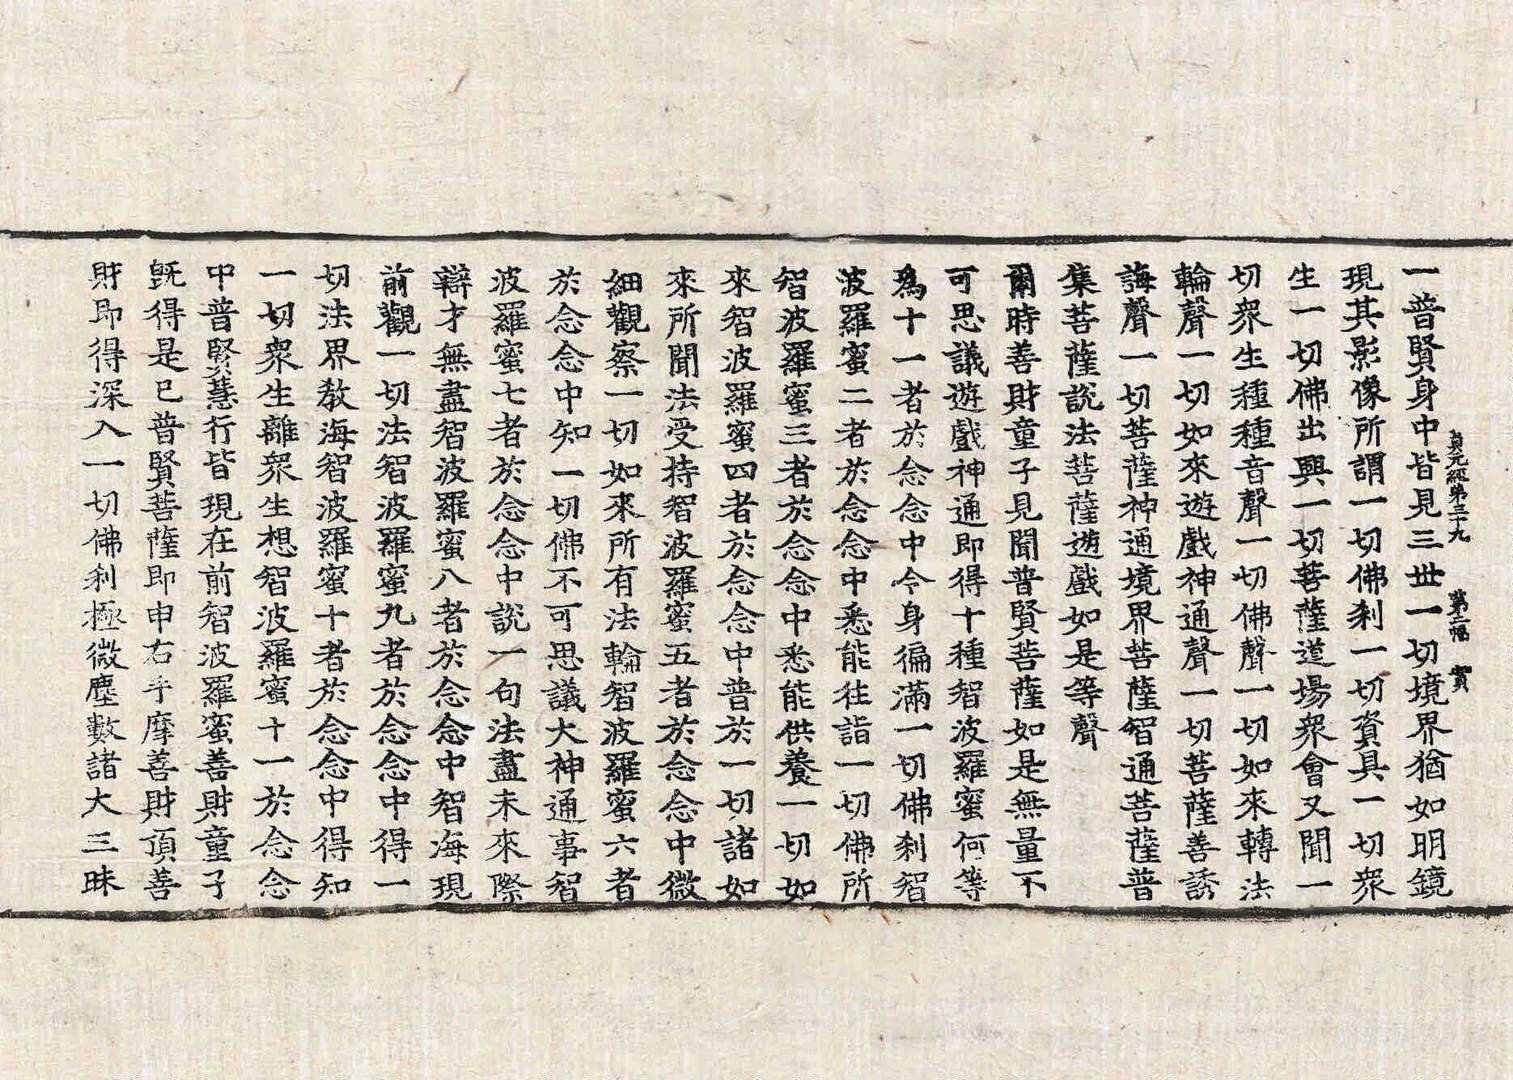 貞元經第三十九 第二幅 實
一普賢身中皆見三世一切境界猶如明鏡
現其影像所謂一切佛刹一切資具一切衆
生一切佛出興一切菩薩道場衆會又聞一
切衆生種種音聲一切佛聲一切如來轉法
輪聲一切如來遊戲神通聲一切菩薩善誘
誨聲一切菩薩神通境界菩薩智通菩薩普
集菩薩說法菩薩遊戲如是等聲
爾時善財童子見聞普賢菩薩如是無量不
可思議遊戲神通即得十種智波羅蜜何等
爲十一者於念念中令身徧滿一切佛刹智
波羅蜜二者於念念中悉能往詣一切佛所
智波羅蜜三者於念念中悉能供養一切如
來智波羅蜜四者於念念中普於一切諸如
來所聞法受持智波羅蜜五者於念念中微
細觀察一切如來所有法輪智波羅蜜六者
於念念中知一切佛不可思議大神通事智
波羅蜜七者於念念中說一句法盡未來際
辯才無盡智波羅蜜八者於念念中智海現
前觀一切法智波羅蜜九者於念念中得一
切法界教海智波羅蜜十者於念念中得知
一切衆生離衆生想智波羅蜜十一於念念
中普賢慧行皆現在前智波羅蜜善財童子
既得是已普賢菩薩即申右手摩善財頂善
財即得深入一切佛刹極微塵數諸大三昧